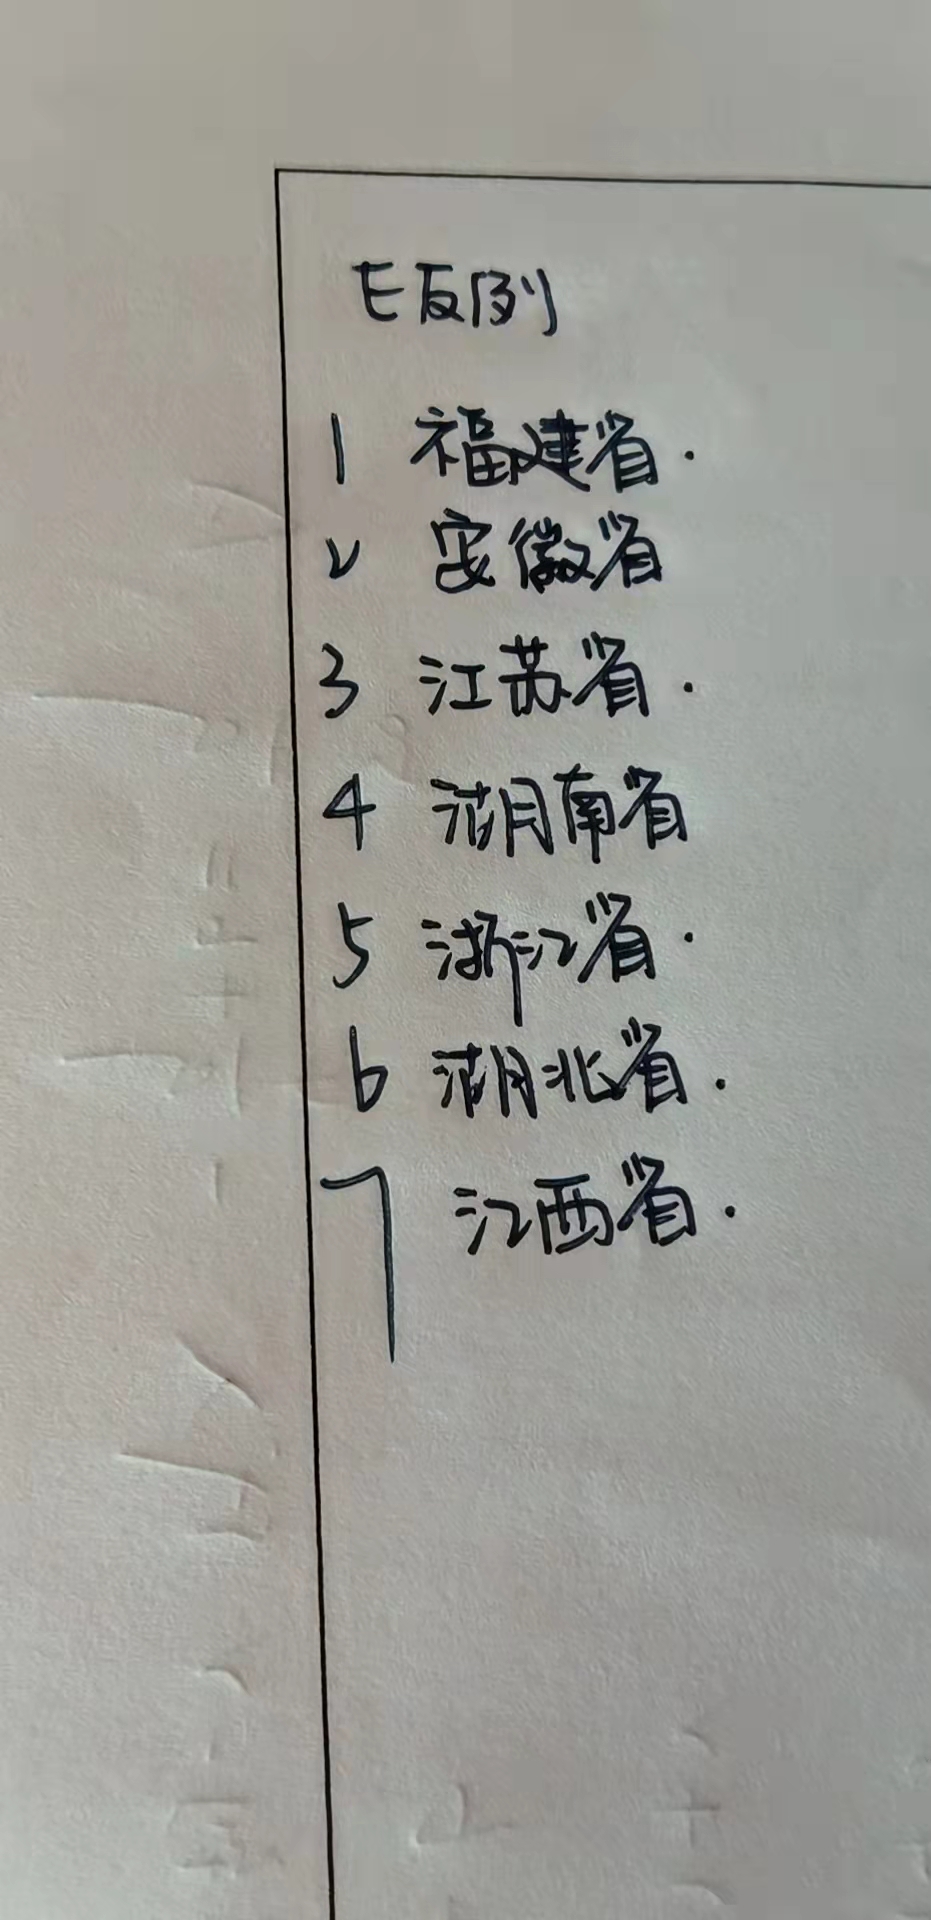 E反例
1 福建省.
2 安徽省
3 江苏省.
4 湖南省
5 浙江省.
6 湖北省.
7 江西省.